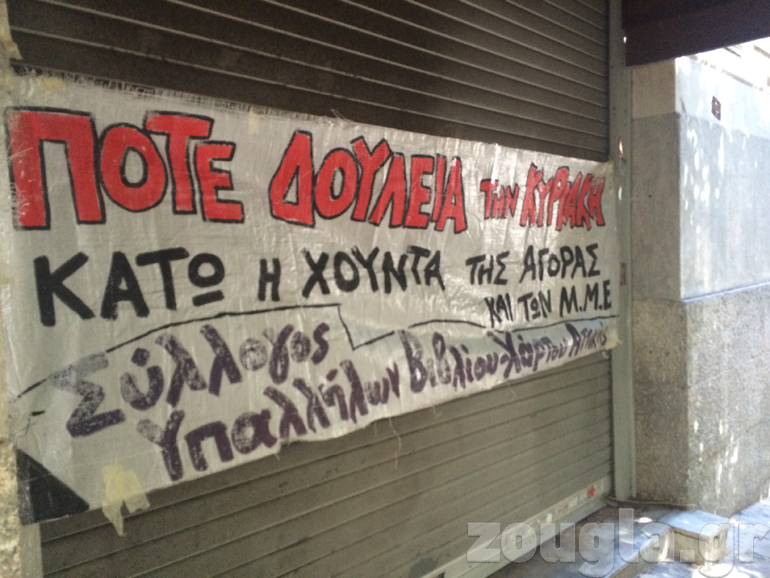 ΠΟΤΕ ΔΟΥΛΕΙΑ ΤΗΝ ΚΥΡΙΑΚΗ
ΚΑΤΩ Η ΧΟΥΝΤΑ ΤΗΣ ΑΓΟΡΑΣ
ΚΑΙ ΤΩΝ Μ.Μ.Ε
Σύλλογος
Υπαλλήλων Βιβλίου-Χάρτου Αττικής
zougla.gr